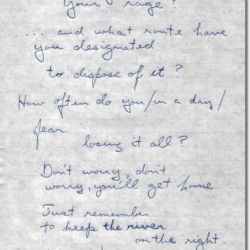 your rage?
... and what route have
you designated
to dispose of it?
How often do you/in a day/
fear
losing it all?
Don't worry, don't
worry, you'll get home
Just remember
to keep the river
on the right